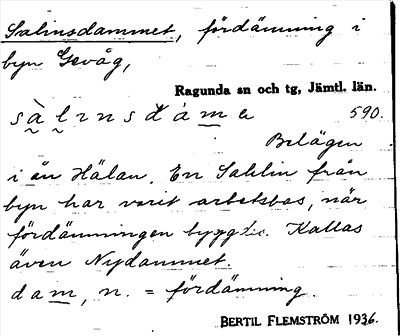 Salinsdammet, fördämning i
byn Gevåg,
Ragunda sn och tg, Jämtl. län.
590.
Belägen
i ån Hälan. En Sahlin från
byn har varit arbetsbas, när
fördämningen byggdes. Kallas
även Nydammet.
dam, n. = fördämning.
BERTIL FLEMSTRÖM 1936.